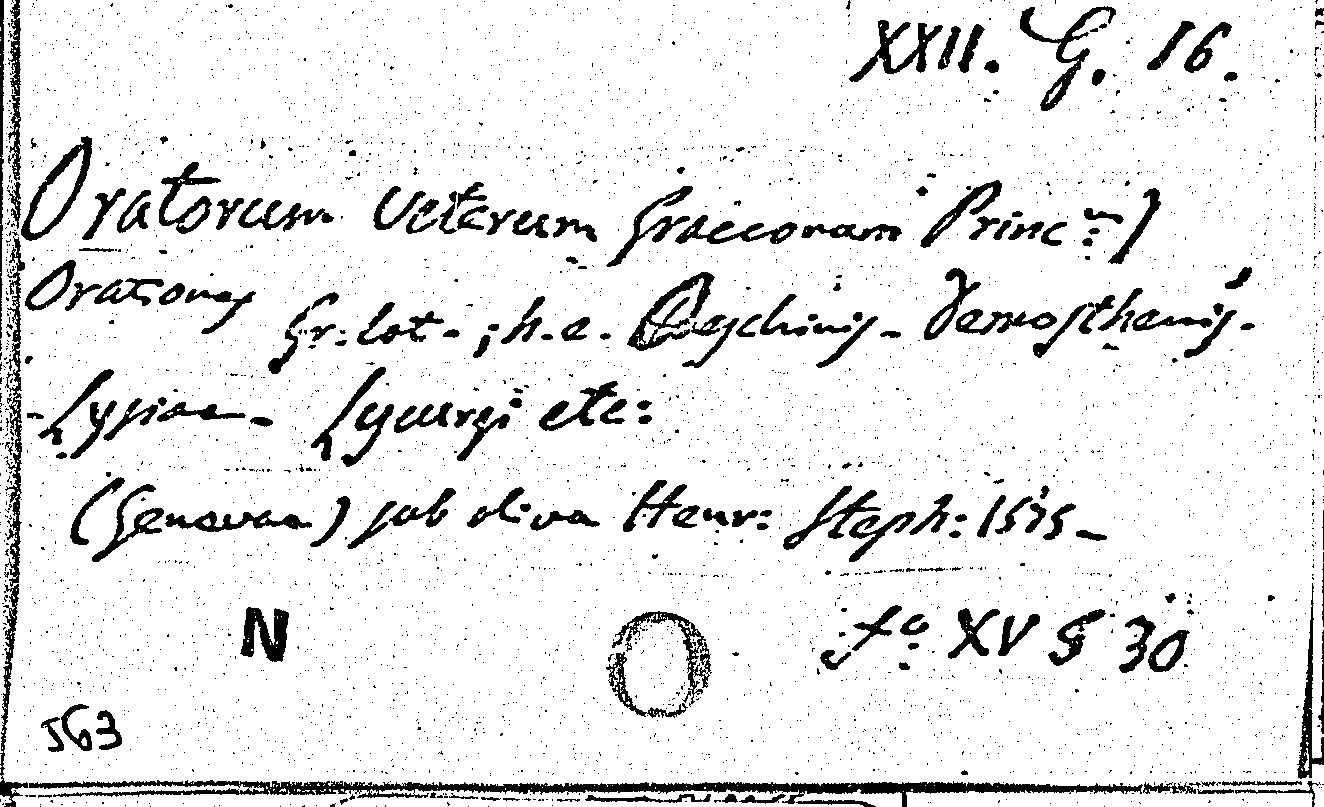 XXII. G. 16.
Oratorum Veterum Graecorum Princ:m)
Orationes Gr: lat-; h. e. Aeschinis- Demosthenis-
-Lysiae- Lycurgi etc:
(Genevae) sub oliva Henr: Steph: 1575-
N fo: XV § 30
563